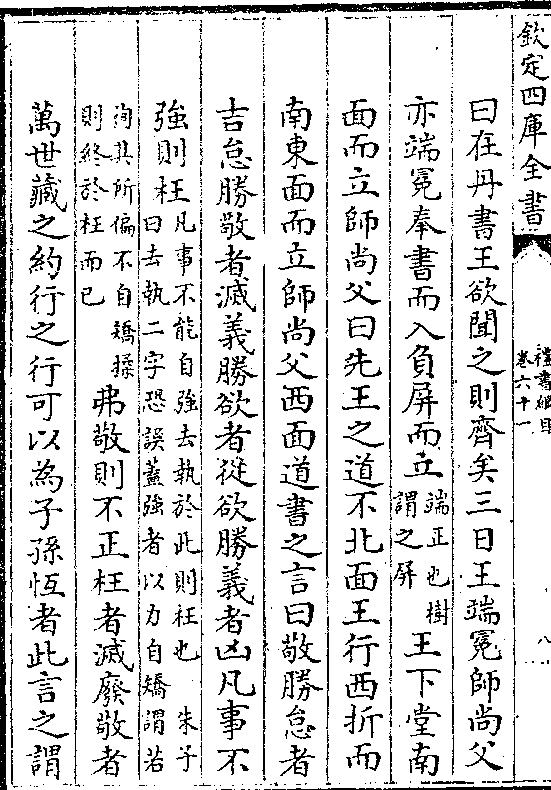 欽定四庫全書
禮書綱目
卷六十一
八
曰在丹書王欲聞之則齊矣三日王端冕師尚父
亦端冕奉書而入負屏而立端正也樹謂之屏王下堂南
面而立師尚父曰先王之道不北面王行西折而
南東面而立師尚父西面道書之言曰敬勝怠者
吉怠勝敬者滅義勝欲者從欲勝義者凶凡事不
強則枉凡事不能自強去執於此則枉也 朱子曰去執二字恐誤蓋強者以力自矯謂若
徇其所偏不自矯揉則終於枉而已弗敬則不正枉者滅廢敬者
萬世藏之約行之行可以為子孫恆者此言之謂